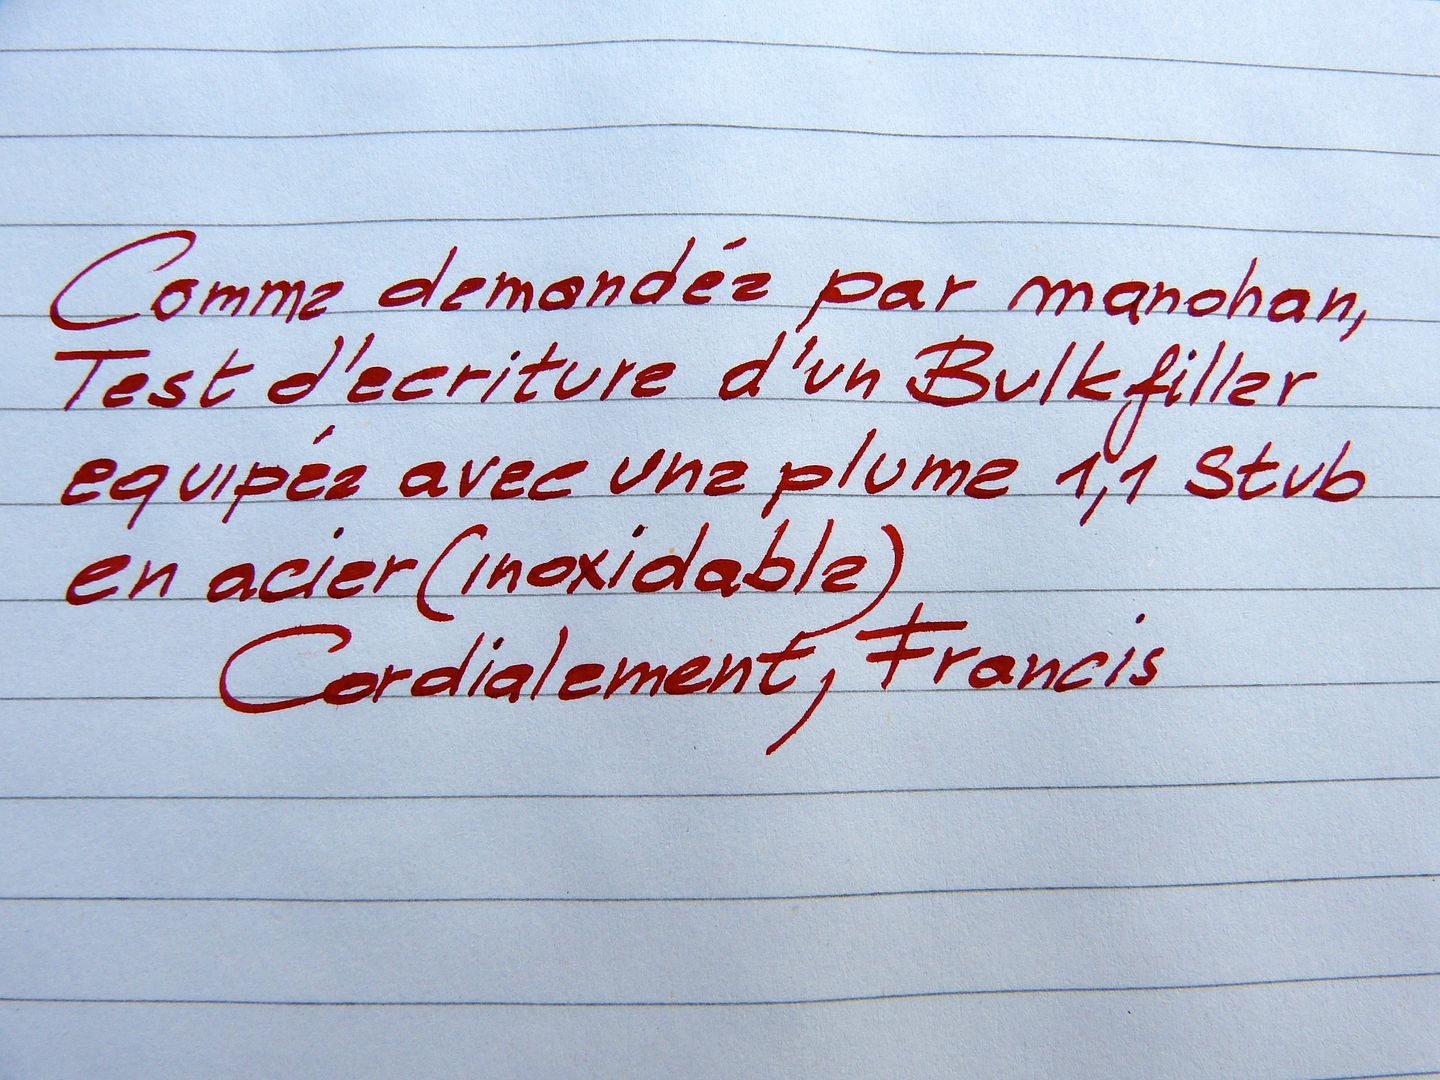 Comme demandée par manohan,
Test d'ecriture d'un Bulkfiller
equipée avec une plume 1,1 Stub
en acier (inoxidable)
Cordialement, Francis